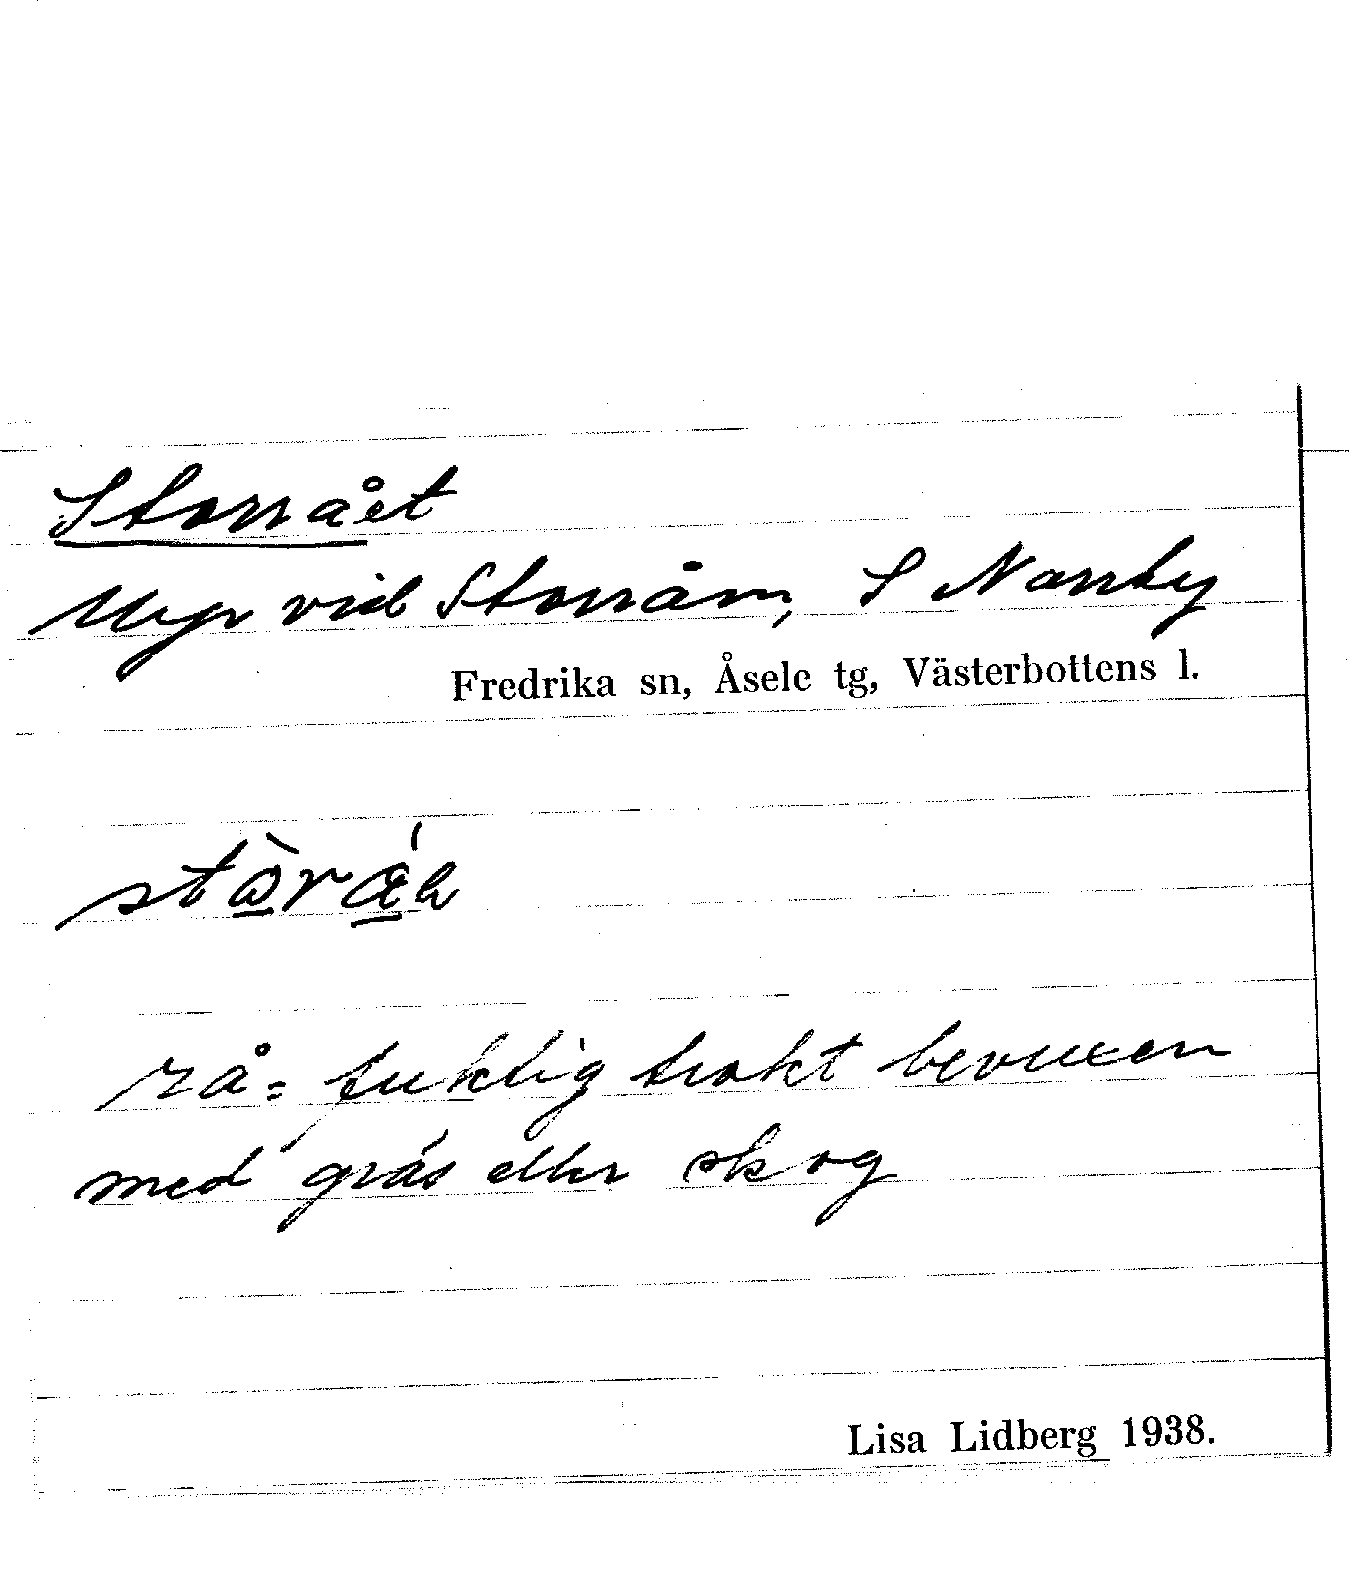 Storrået
Myr vid Storråm, S Norrby
Fredrika sn, Åsele tg, Västerbottens l.
rå = fuktig trakt bevuxen
med gräs eller skog
Lisa Lidberg 1938.